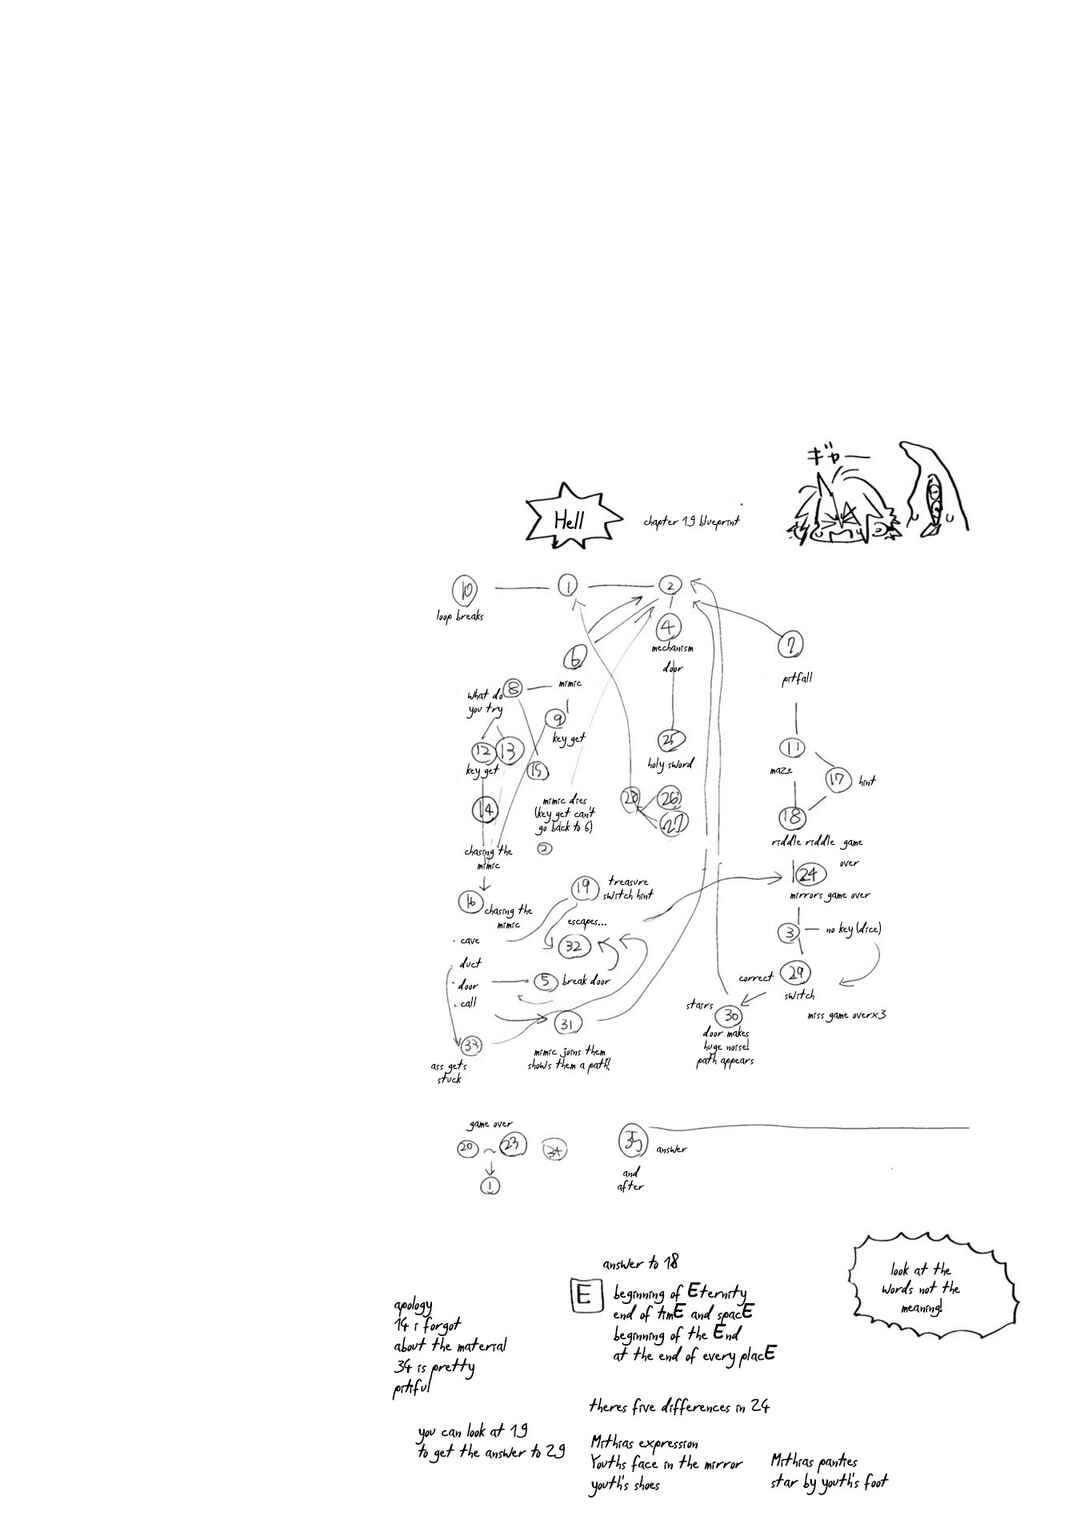 ギャー
Hell
chapter 19 blueprint
10
1
2
loop breaks
4
mechanism
door
7
pitfall
6
mimic
8
what do
you try
9
key get
12
13
key get
15
25
holy sword
11
maze
17
hint
14
mimic dies
(key get can't
go back to 6)
2
28
26
27
18
riddle riddle game
over
chasing the
mimic
16
chasing the
mimic
19
treasure
switch hint
24
mirrors game over
escapes...
32
3
no key (dice)
· cave
· duct
· door
· call
5
break door
correct
29
switch
miss game over×3
31
stairs
30
door makes
huge noise!
path appears
33
ass gets
stuck
mimic joins them
shows them a path!
game over
20
~
23
34
1
35
answer
and
after
answer to 18
E
beginning of Eternity
end of timE and spacE
beginning of the End
at the end of every placE
look at the
words not the
meaning!
apology
14 i forgot
about the material
34 is pretty
pitiful
theres five differences in 24
you can look at 19
to get the answer to 29
Mithias expression
Youths face in the mirror
youth's shoes
Mithias panties
star by youth's foot